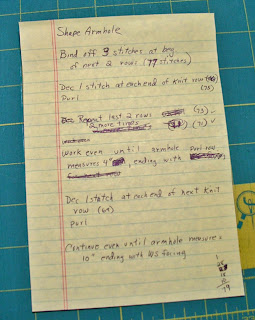 Shape Armhole
Bind off 3 stitches at beg
of next 2 rows (77 stitches)
Dec 1 stitch at each end of Knit row
(75)
Purl
Repeat last 2 rows (73) ✓
2 more times (71) ✓
Work even until armhole
measures 4", ending with Purl row
Dec 1 stitch at each end of next Knit
row (69)
Purl
Continue even until armhole measures
10" ending with WS facing